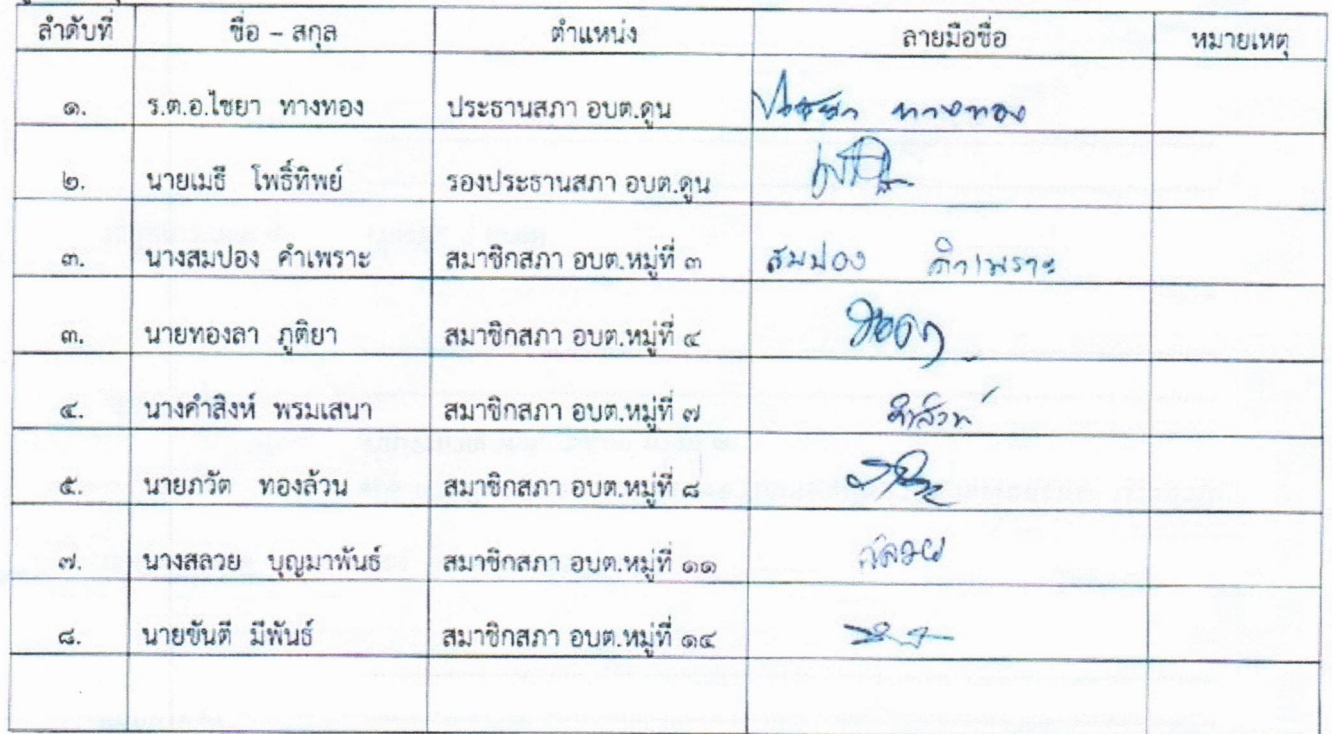 ลำดับที่ ชื่อ – สกุล ตำแหน่ง ลายมือชื่อ หมายเหตุ
๑. ร.ต.อ.ไชยา ทางทอง ประธานสภา อบต.ดูน ไชยา ทางทอง
๒. นายเมธี โพธิ์ทิพย์ รองประธานสภา อบต.ดูน
๓. นางสมปอง คำเพราะ สมาชิกสภา อบต.หมู่ที่ ๓ สมปอง คำเพราะ
๓. นายทองลา ภูติยา สมาชิกสภา อบต.หมู่ที่ ๔
๔. นางคำสิงห์ พรมเสนา สมาชิกสภา อบต.หมู่ที่ ๗
๕. นายภวัต ทองล้วน สมาชิกสภา อบต.หมู่ที่ ๘
๗. นางสลวย บุญมาพันธ์ สมาชิกสภา อบต.หมู่ที่ ๑๑ สลวย
๘. นายขันตี มีพันธ์ สมาชิกสภา อบต.หมู่ที่ ๑๔